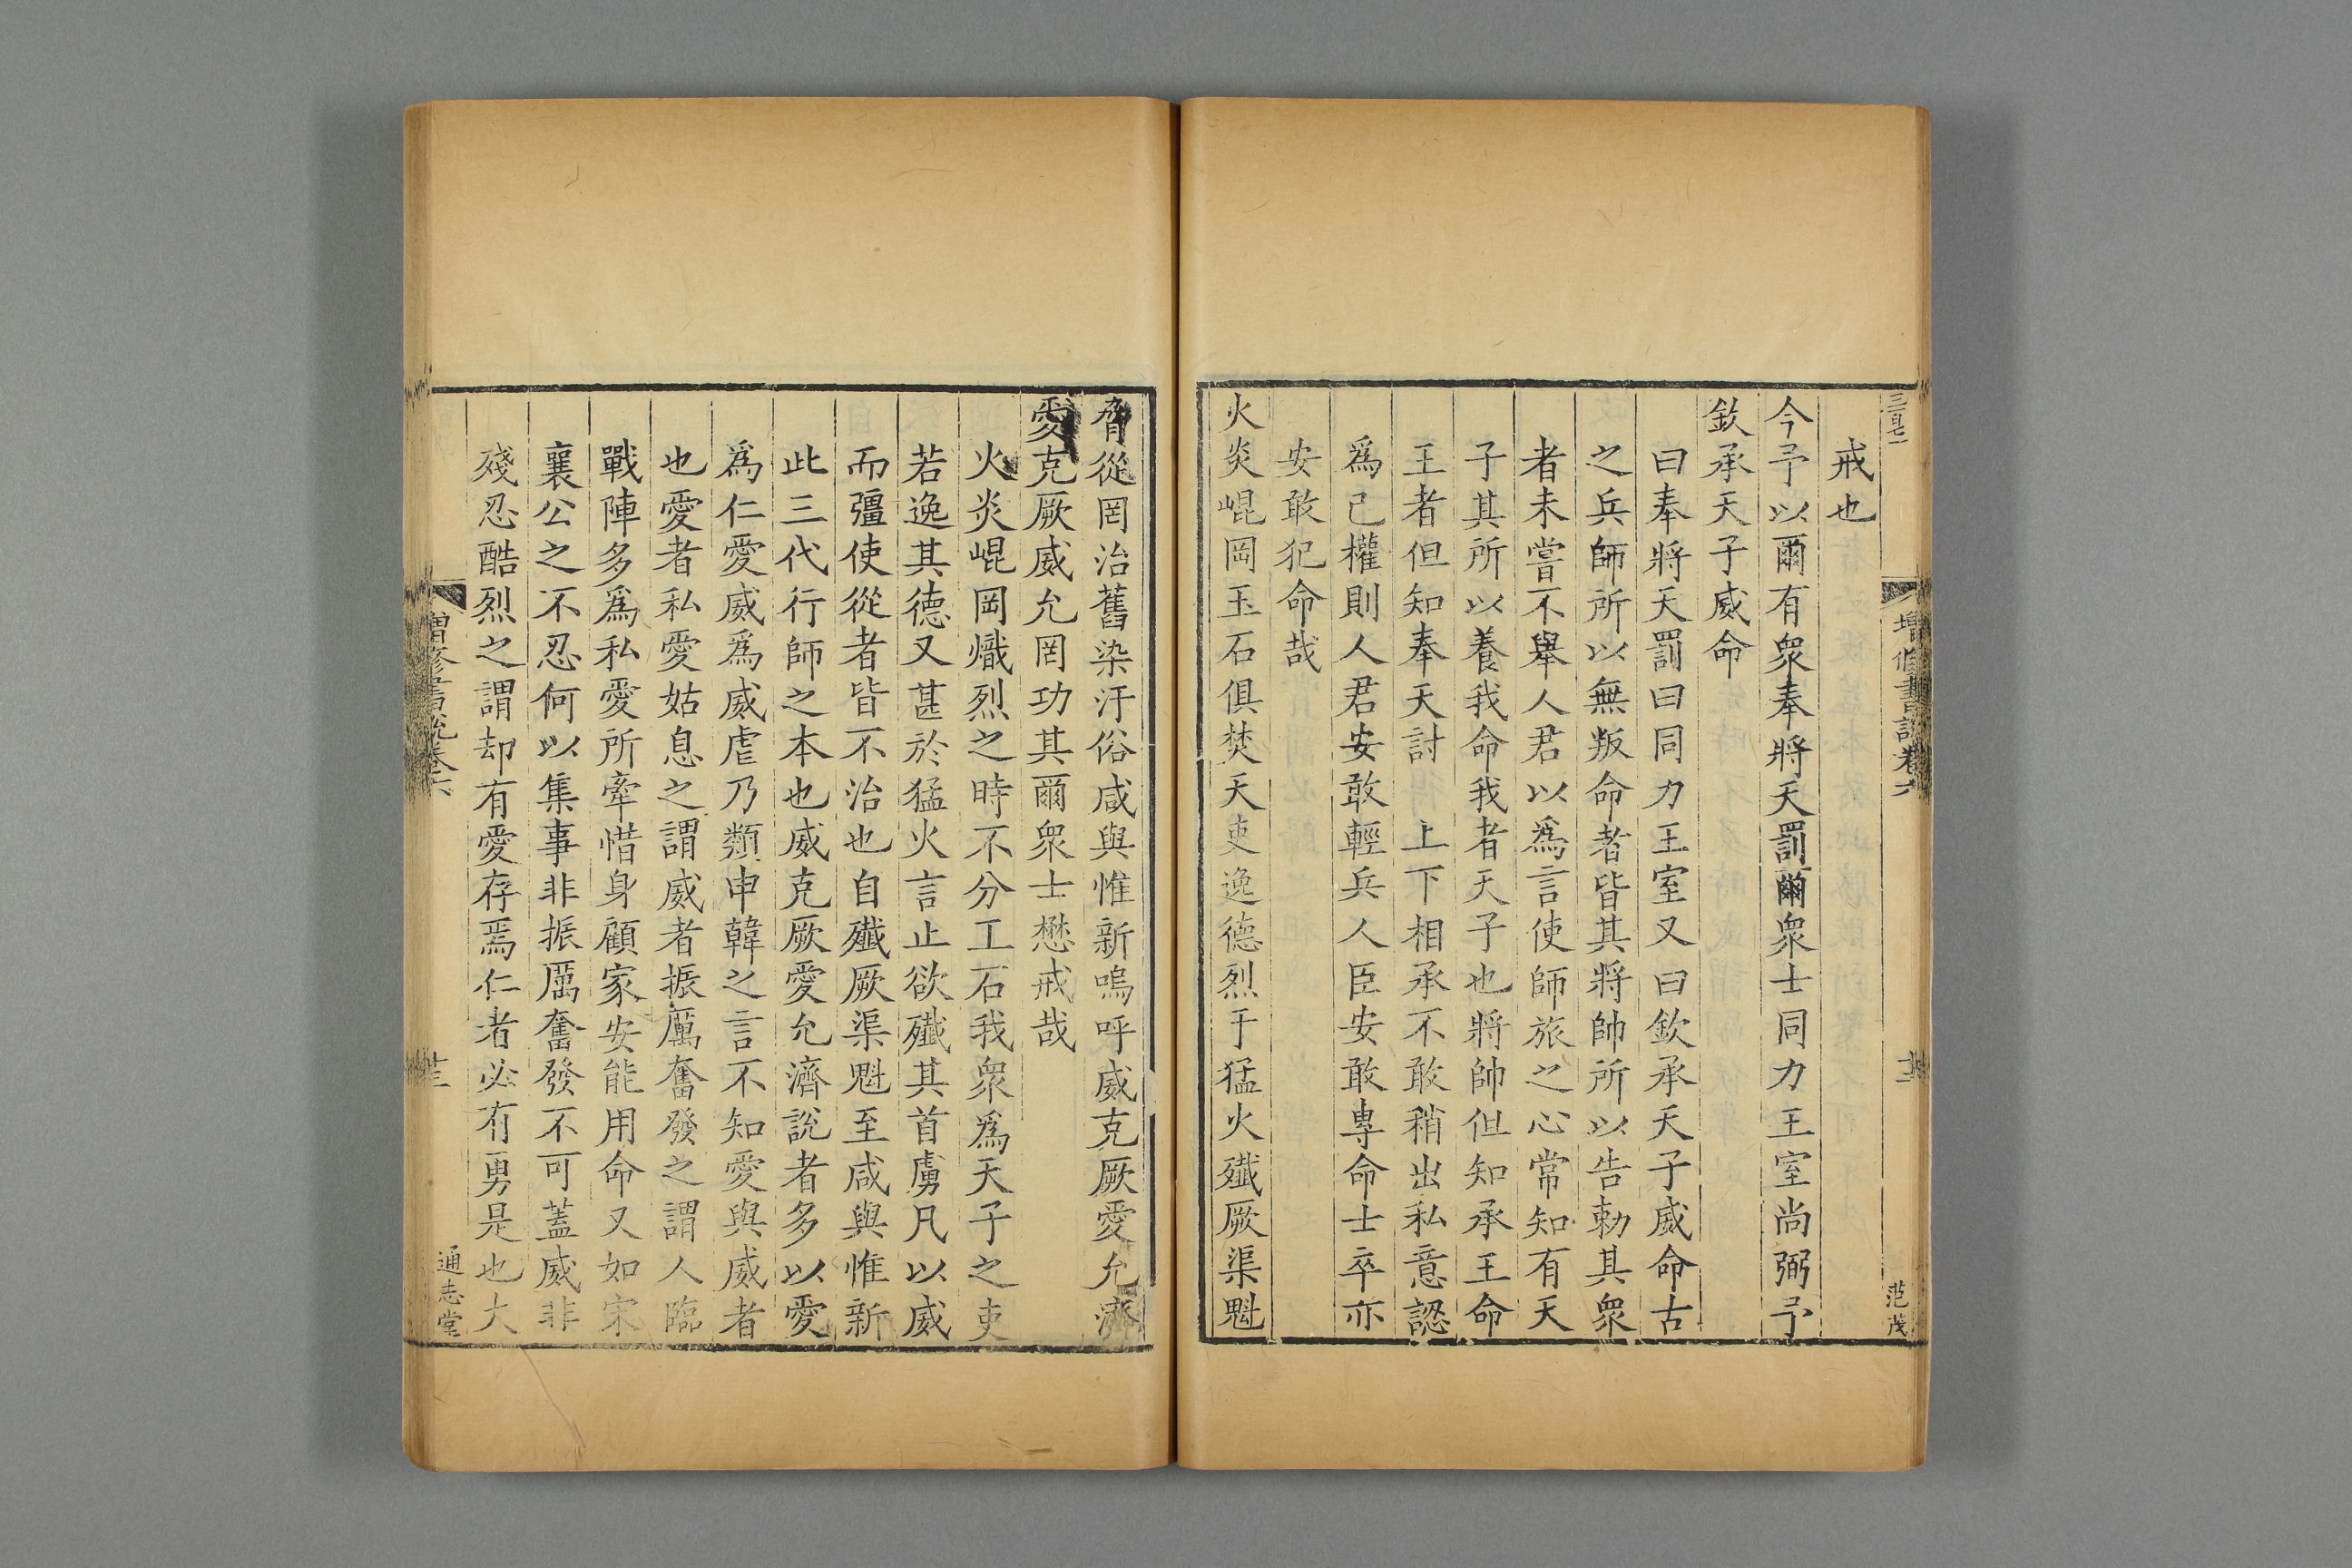 戒也
今予以爾有衆奉將天罰爾衆士同力王室尚弼予
欽承天子威命
曰奉將天罰曰同力王室又曰欽承天子威命古
之兵師所以無叛命者皆其將帥所以告勑其衆
者未嘗不舉人君以爲言使師旅之心常知有天
子其所以養我命我者天子也將帥但知承王命
王者但知奉天討上下相承不敢稍出私意認
爲己權則人君安敢輕兵人臣安敢專命士卒亦
安敢犯命哉
火炎崐岡玉石俱焚天吏逸德烈于猛火殲厥渠魁
脅從罔治舊染汙俗咸與惟新嗚呼威克厥愛允濟
愛克厥威允罔功其爾衆士懋戒哉
火炎崐岡熾烈之時不分工石我衆爲天子之吏
若逸其德又甚於猛火言止欲殲其首虜凡以威
而彊使從者皆不治也自殲厥渠魁至咸與惟新
此三代行師之本也威克厥愛允濟說者多以愛
爲仁愛威爲威虐乃類申韓之言不知愛與威者
也愛者私愛姑息之謂威者振厲奮發之謂人臨
戰陣多爲私愛所牽惜身顧家安能用命又如宋
襄公之不忍何以集事非振厲奮發不可蓋威非
殘忍酷烈之謂却有愛存焉仁者必有勇是也大
增修書說卷六
通志堂